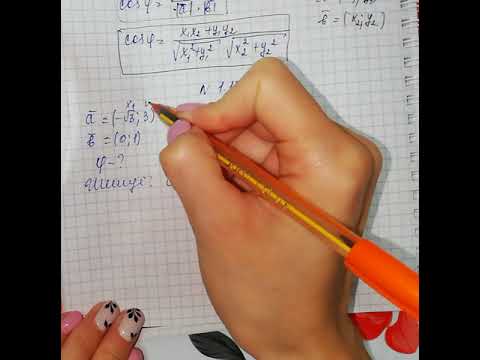 cosφ = / |ā| · |b̄|
b̄ = (x₂; y₂)
cosφ = x₁x₂ + y₁y₂ / √x₁² + y₁² · √x₂² + y₂²
N 1.1
x₁
ā = (-√3; 3)
b̄ = (0; 1)
φ - ?